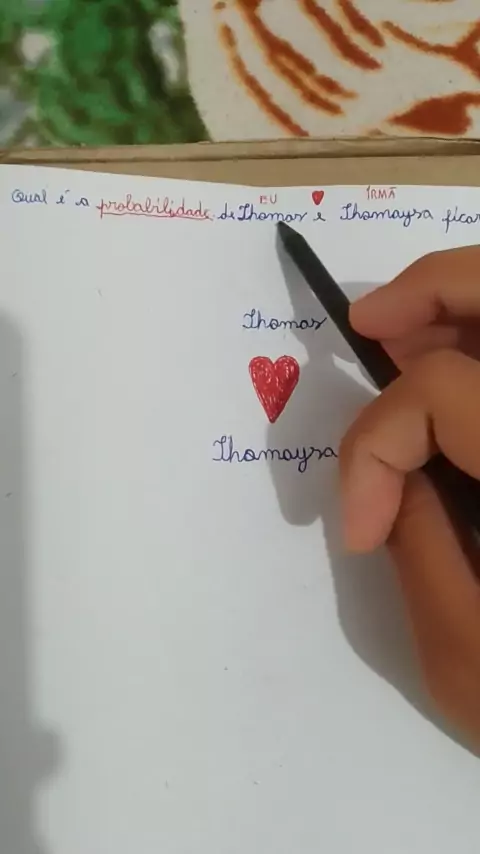 EU ÍRMÃ
Qual é a probabilidade de Thomas e Thomaysa ficar
Thomas
Thomaysa